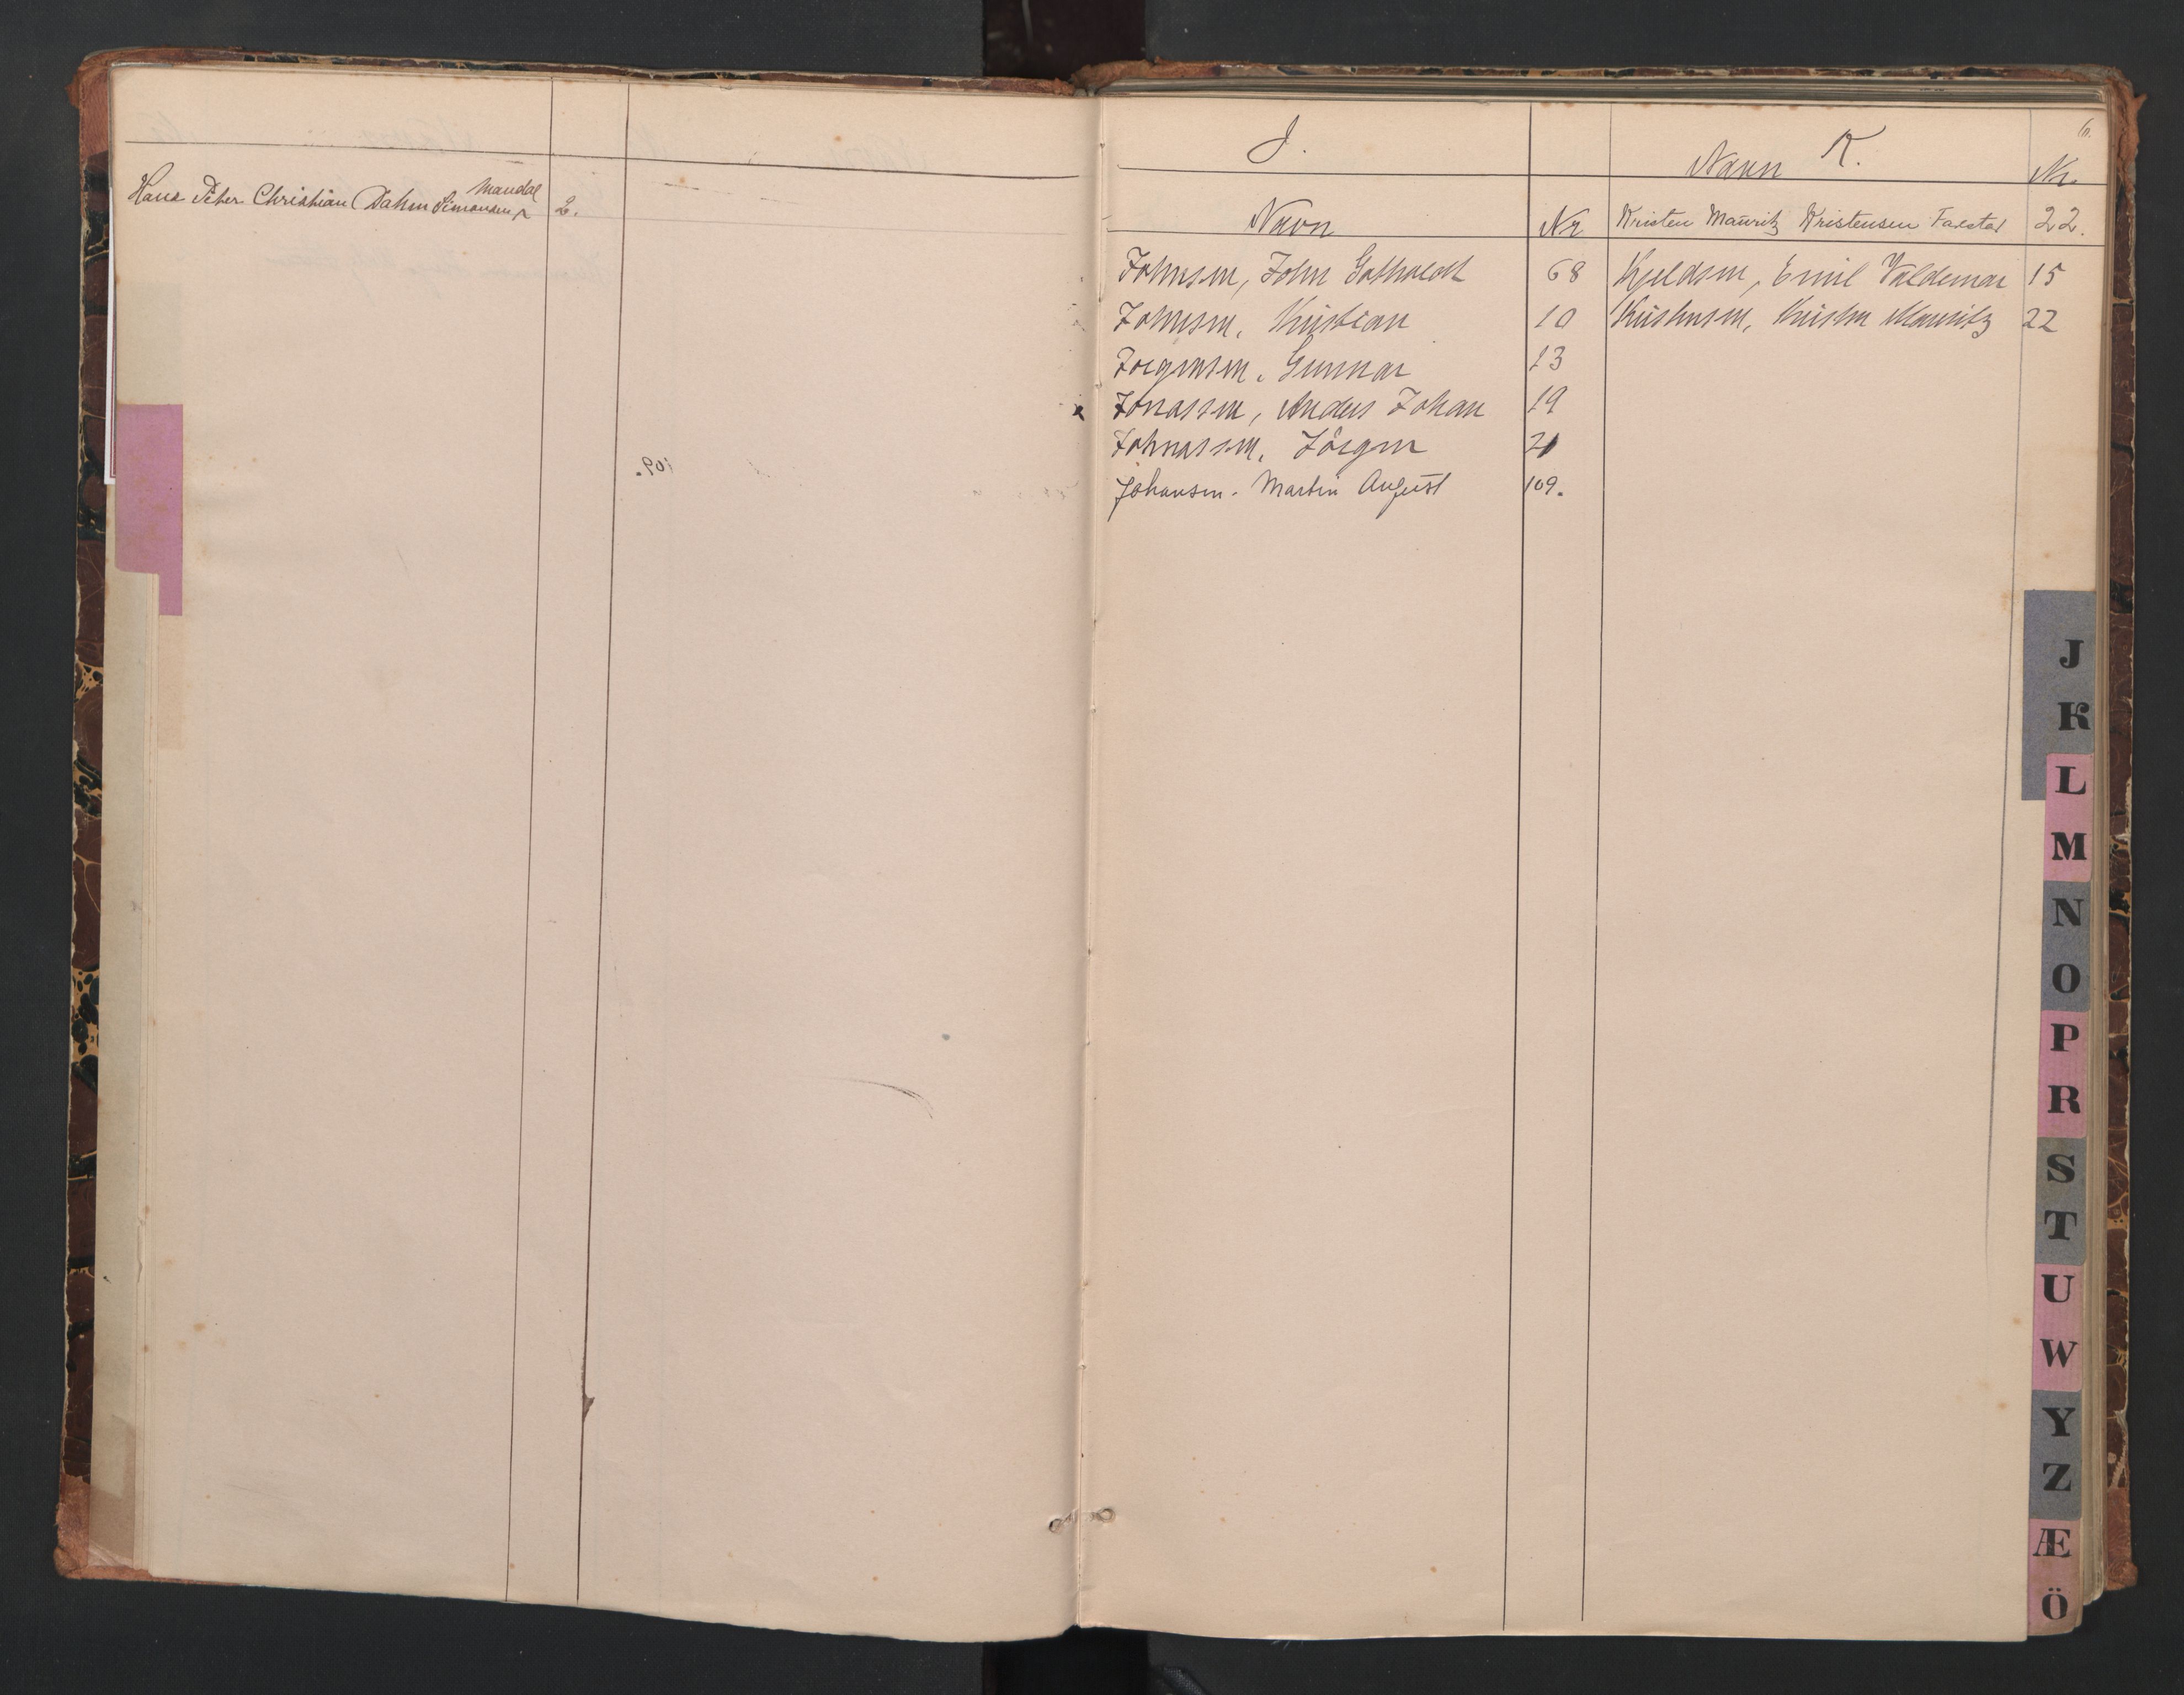 Mandal
Hans Peter Christian Dahm Simonsen 2.
6.
J.
Navn Nr
Johnsen, John Gothardt 68
Johnsen, Kristian 10
Jörgensen, Gunnar 13
Jonassen, Anders Johan 19
Johnassen, Jörgen 21
Johansen. Martin August 109.
K.
Navn Nr.
Kristen Mauritz Kristensen Farestad 22.
Kjeldsen, Emil Valdemar 15
Kristensen, Kristen Mauritz 22
J
K
L
M
N
O
P
R
S
T
U
W
Y
Z
Æ
Ö